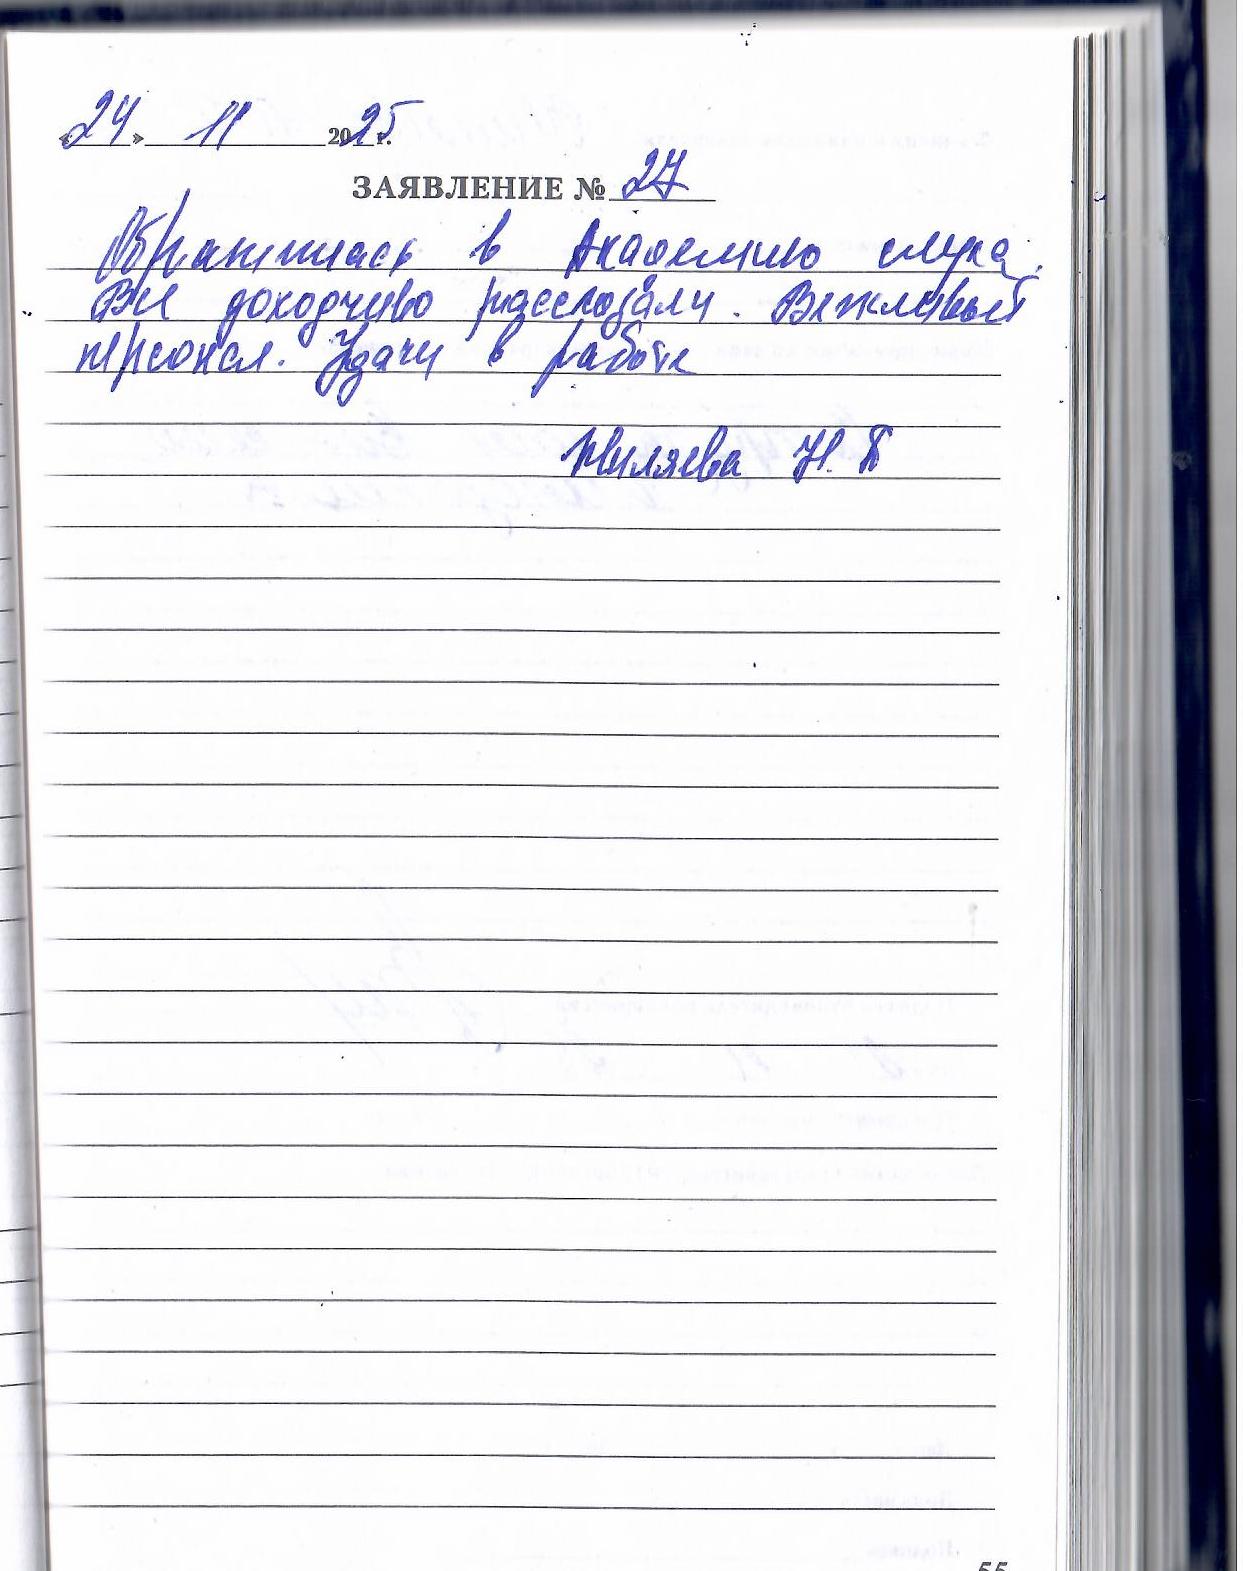 «24» 11 2025 г.
ЗАЯВЛЕНИЕ № 27
Обратилась в Академию слуха.
Все доходчиво рассказали. Вежливый
персонал. Удачи в работе
Жиляева Н.П
55